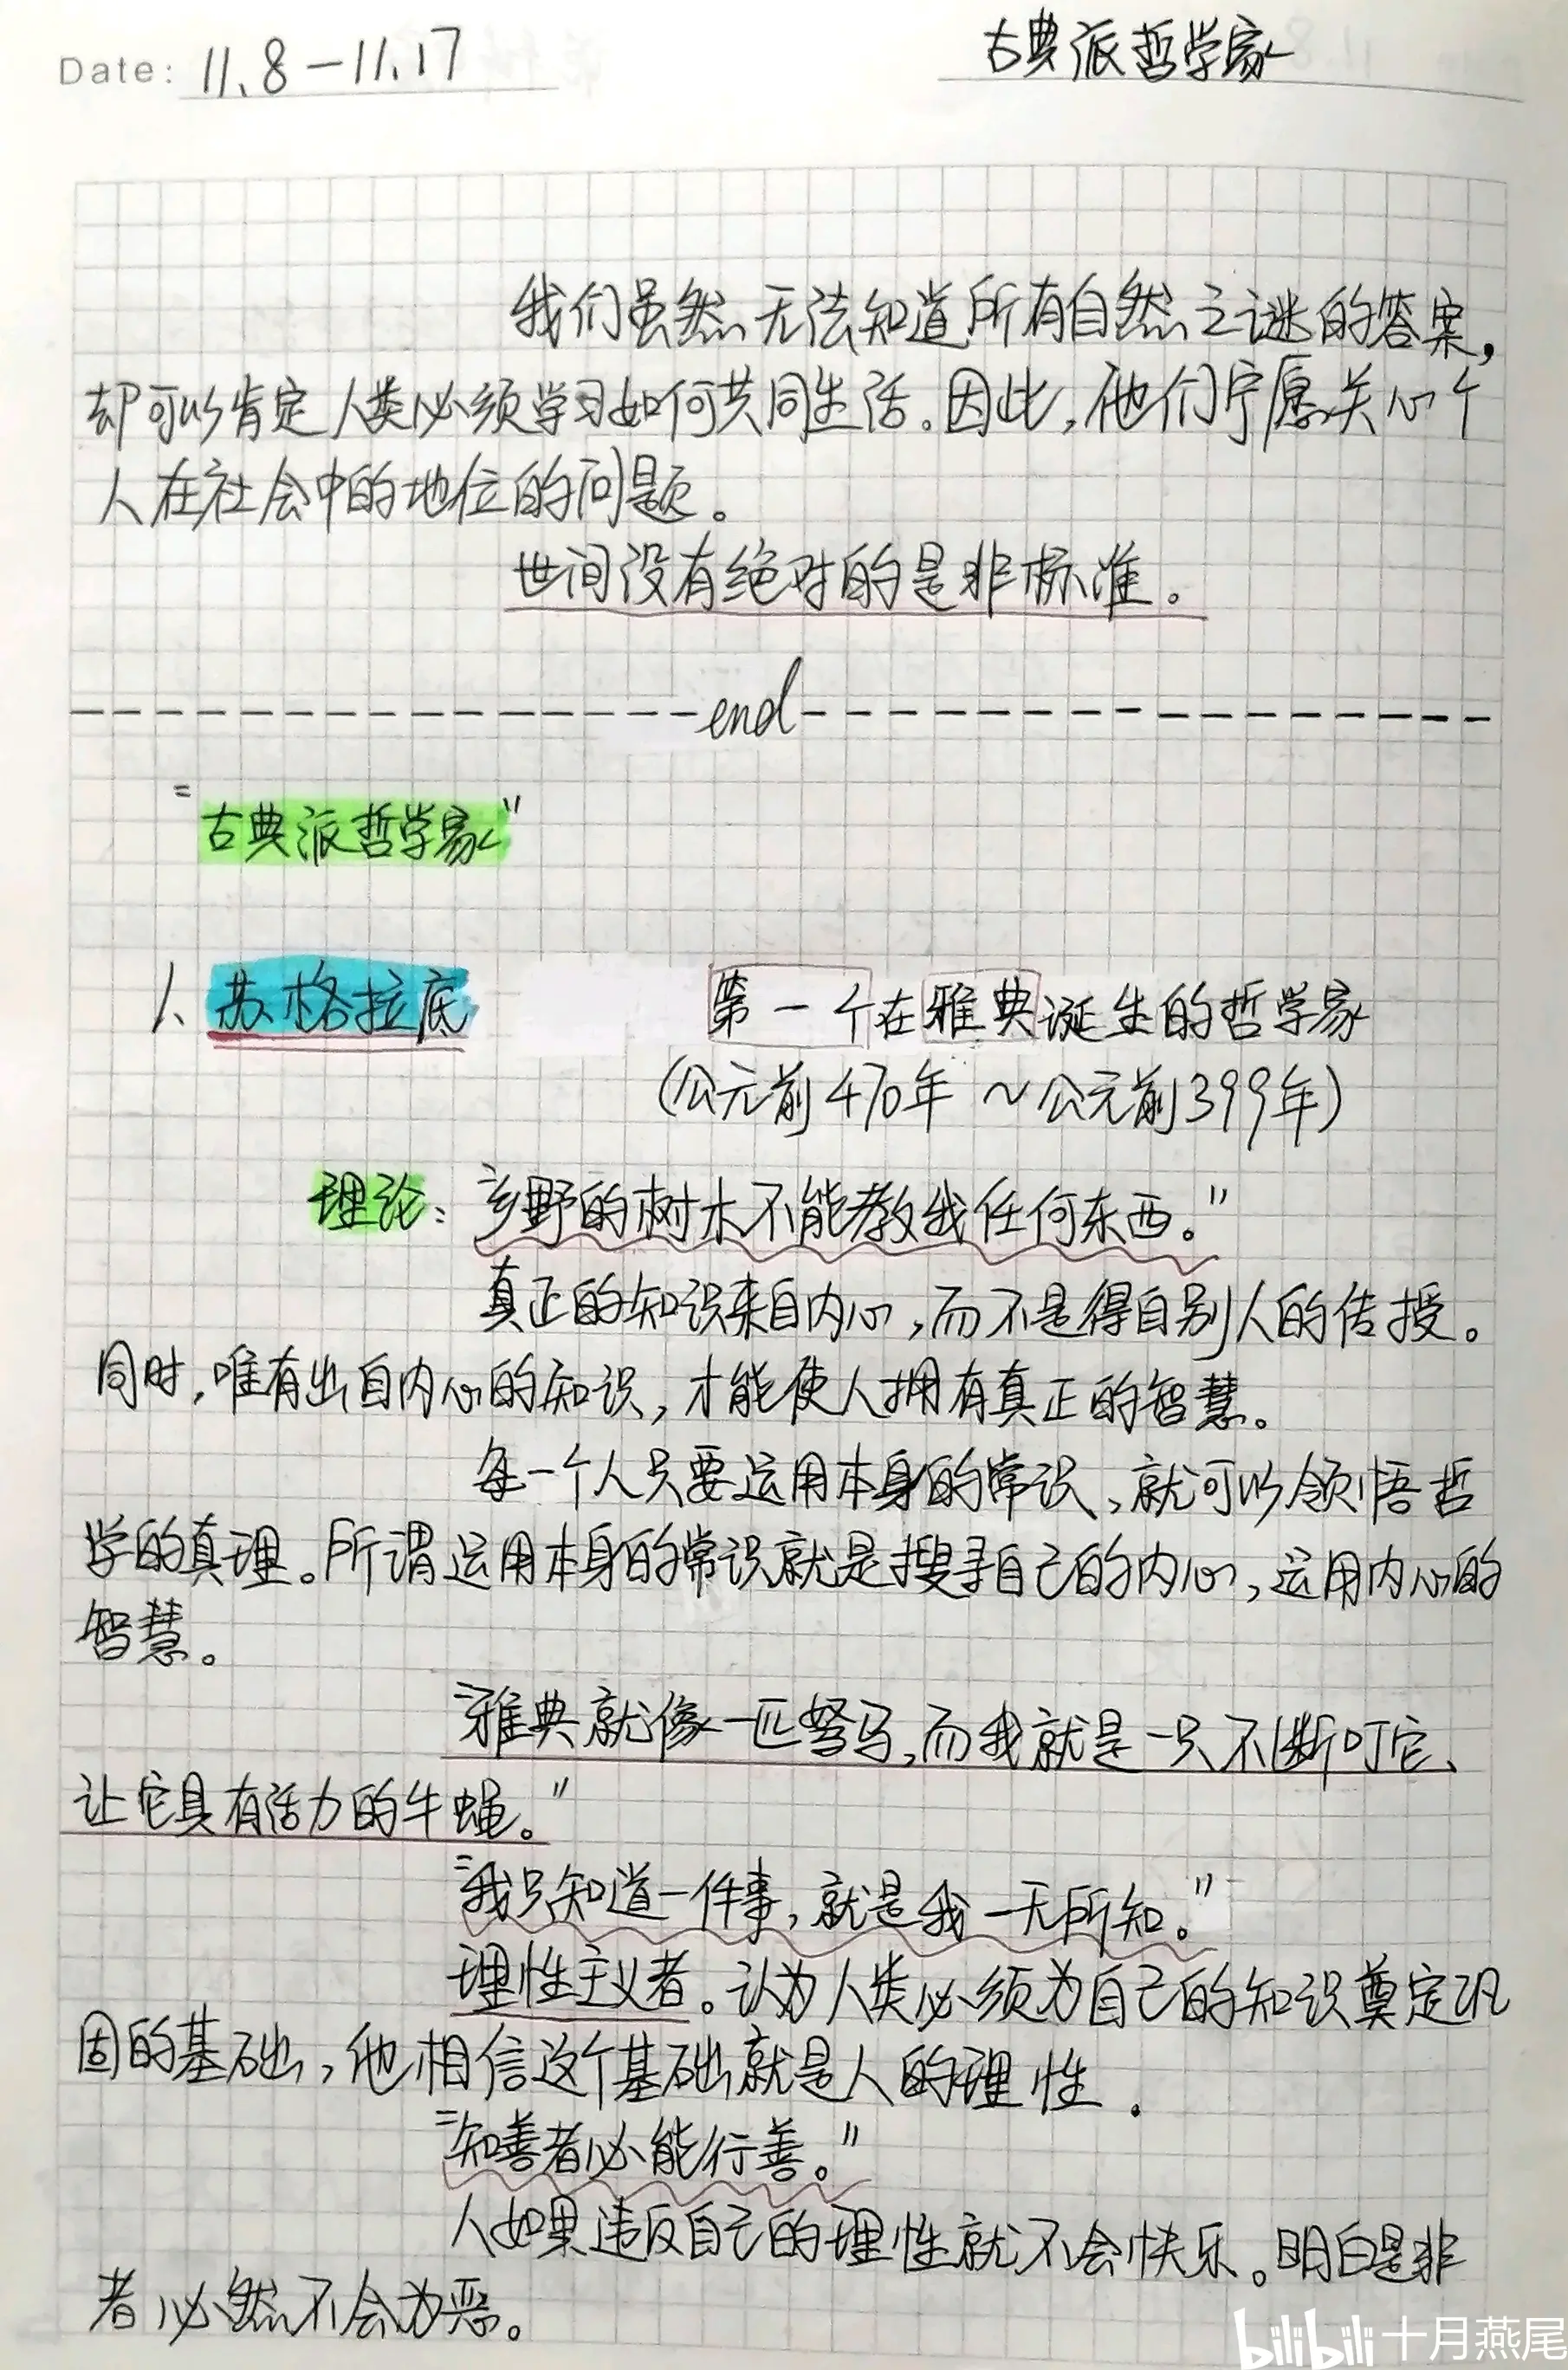 Date: 11.8-11.17
古典派哲学家
我们虽然无法知道所有自然之谜的答案,
却可以肯定人类必须学习如何共同生活。因此,他们宁愿关心个
人在社会中的地位的问题。
世间没有绝对的是非标准。
end
"古典派哲学家"
1、苏格拉底 第一个在雅典诞生的哲学家
(公元前470年 ~公元前399年)
理论:"乡野的树木不能教我任何东西。"
真正的知识来自内心,而不是得自别人的传授。
同时,唯有出自内心的知识,才能使人拥有真正的智慧。
每一个人只要运用本身的常识,就可以领悟哲
学的真理。所谓运用本身的常识就是搜寻自己的内心,运用内心的
智慧。
"雅典就像一匹驽马,而我就是一只不断叮它、
让它具有活力的牛蝇。"
"我只知道一件事,就是我一无所知。"
理性主义者。认为人类必须为自己的知识奠定巩
固的基础,他相信这个基础就是人的理性.
"知善者必能行善。"
人如果违反自己的理性就不会快乐。明白是非
者必然不会为恶。
bilibili 十月燕尾